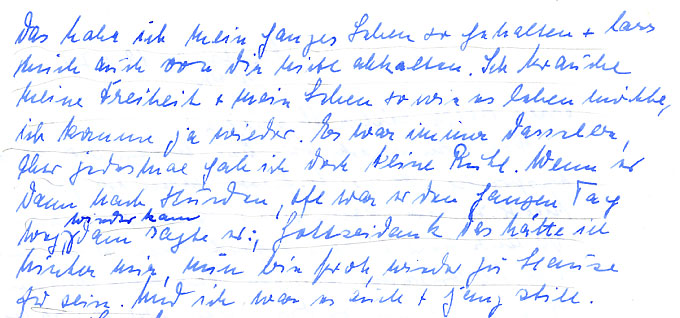 Das habe ich mein ganzes Leben so gehalten + lass
mich auch von Dir nicht abhalten. Ich brauche
meine Freiheit + mein Leben so wie es leben möchte,
ich komme ja wieder. Es war immer dasselbe,
Aber jedesmal gab ich doch keine Ruhe. Wenn er
dann nach Stunden, oft war er den ganzen Tag
weg, wieder kam dann sagte er:, Gottseidank das hätte ich
hinter mir, nun bin froh, wieder zu Hause
zu sein. Und ich war es auch + ganz still.